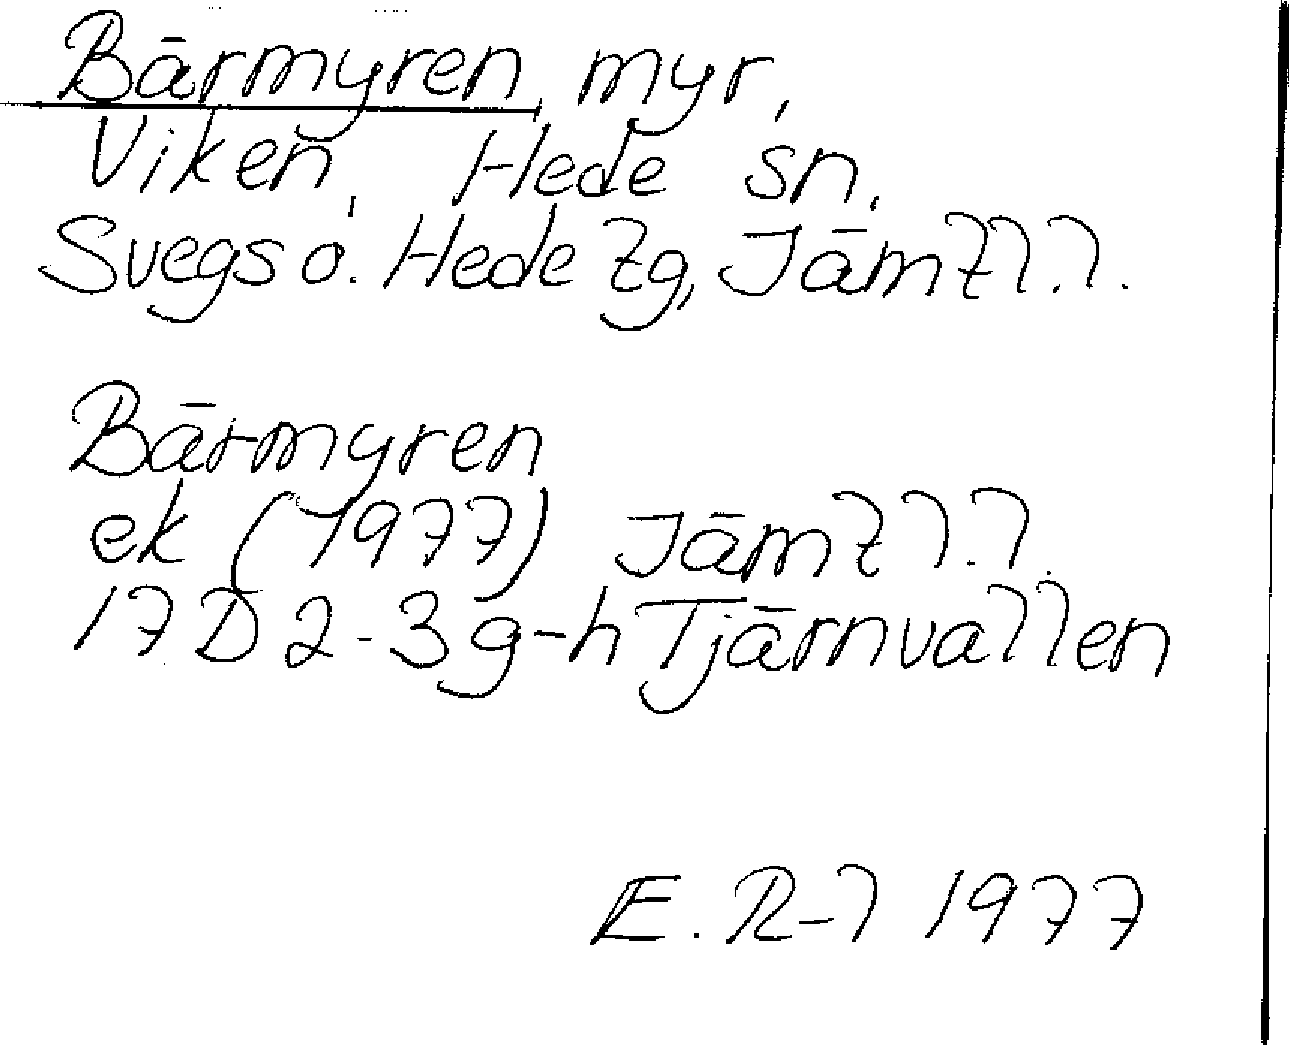 Bärmyren, myr,
Viken, Hede sn,
Svegs o. Hede tg, Jämtl.l.
Bärmyren
ek (1977) Jämtl.l.
17D 2-3g-h Tjärnvallen
E. R-l 1977